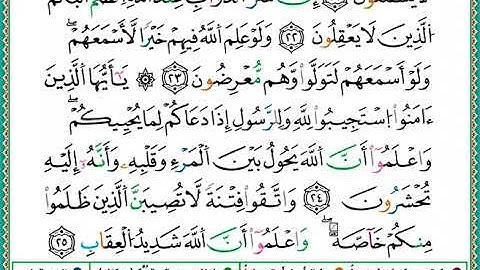 الَّذِينَ لَا يَعْقِلُونَ ۝٢٢ وَلَوْ عَلِمَ اللَّهُ فِيهِمْ خَيْرًا لَّأَسْمَعَهُمْ ۖ
وَلَوْ أَسْمَعَهُمْ لَتَوَلَّوا وَّهُم مُّعْرِضُونَ ۝٢٣ ۞ يَٰٓأَيُّهَا الَّذِينَ
ءَامَنُوا اسْتَجِيبُوا لِلَّهِ وَلِلرَّسُولِ إِذَا دَعَاكُمْ لِمَا يُحْيِيكُمْ ۖ
وَاعْلَمُوٓا أَنَّ اللَّهَ يَحُولُ بَيْنَ الْمَرْءِ وَقَلْبِهِۦ وَأَنَّهُۥٓ إِلَيْهِ
تُحْشَرُونَ ۝٢٤ وَاتَّقُوا فِتْنَةً لَّا تُصِيبَنَّ الَّذِينَ ظَلَمُوا
مِنكُمْ خَآصَّةً ۖ وَاعْلَمُوٓا أَنَّ اللَّهَ شَدِيدُ الْعِقَابِ ۝٢٥